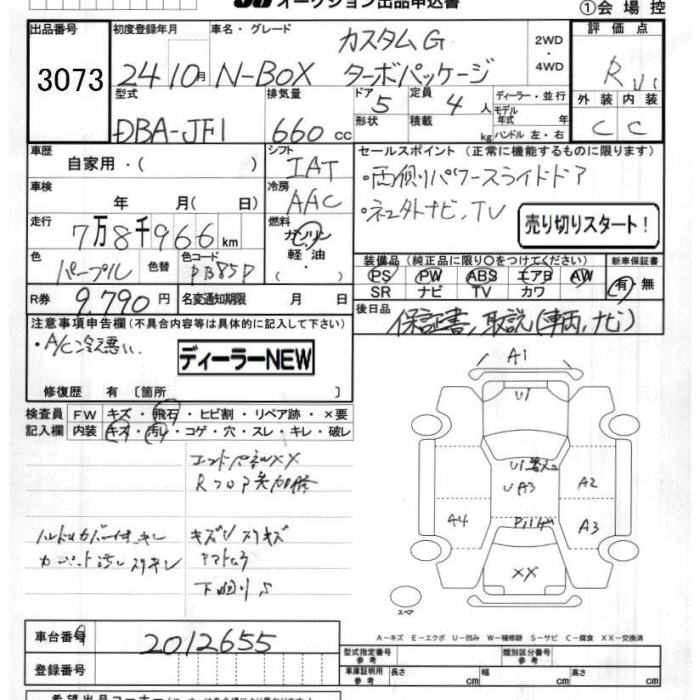 オークション出品申込書
①会場控
出品番号 初度登録年月 車名・グレード 評価点
3073
24 10月 N-BOX カスタムG ターボパッケージ 2WD 4WD
R
型式 排気量 ドア 5 定員 4人 ディーラー・並行
形状 積載 kg モデル年式 年 ハンドル 左・右
DBA-JF1 660cc
外装 内装
C C
車歴 自家用・( ) シフト IAT
セールスポイント (正常に機能するものに限ります)
・両側パワースライドドア
車検 年 月( 日) 冷房 AAC
・ネェ外ナビ、TV
売り切りスタート!
走行 7万8千966km 燃料 ガソリン 軽油 ・( )
色 パープル 色替 色コード PB85P
装備品 (純正品に限り○をつけてください) 新車保証書
PS PW ABS エアB AW 有・無
SR ナビ TV カワ
R券 9,790円 名変通知期限 月 日
後日品 保証書、取説(車両、ナビ)
注意事項申告欄(不具合内容等は具体的に記入して下さい)
・A/C冷え悪い.
ディーラーNEW
修復歴 有 〔箇所 〕
検査員記入欄 FW キズ・飛石・ヒビ割・リペア跡・×要
内装 キズ・汚れ・コゲ・穴・スレ・キレ・破レ
XX
Rフロア
キズU スリキズ
A1
U1
U1
UA3
A2
A4
A3
XX
スペア
A-キズ E-エクボ U-凹み W-補修跡 S-サビ C-腐食 XX-交換済
車台番号 2012655
登録番号
型式指定番号 参考 類別区分番号 参考
車庫証明用 参考 長さ cm 幅 cm 高さ cm
希望出品コーナー